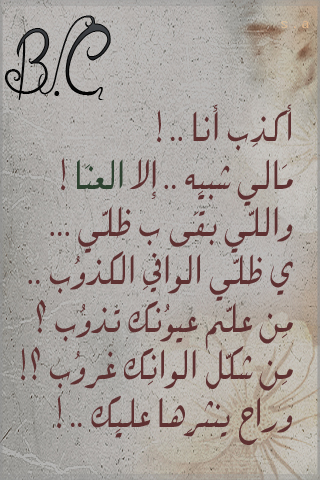 B.C
أكذِب أنا .. !
مَالي شبيِه .. إلا العنَا !
واللّي بقَى ب ظلّي ...
ي ظلّي الوافي الكذوُب ..
مِن علّم عيوُنك تذوُب ؟
مِن شكّل الوانِك غروُب ؟!
وراح ينثرها عليك .. !